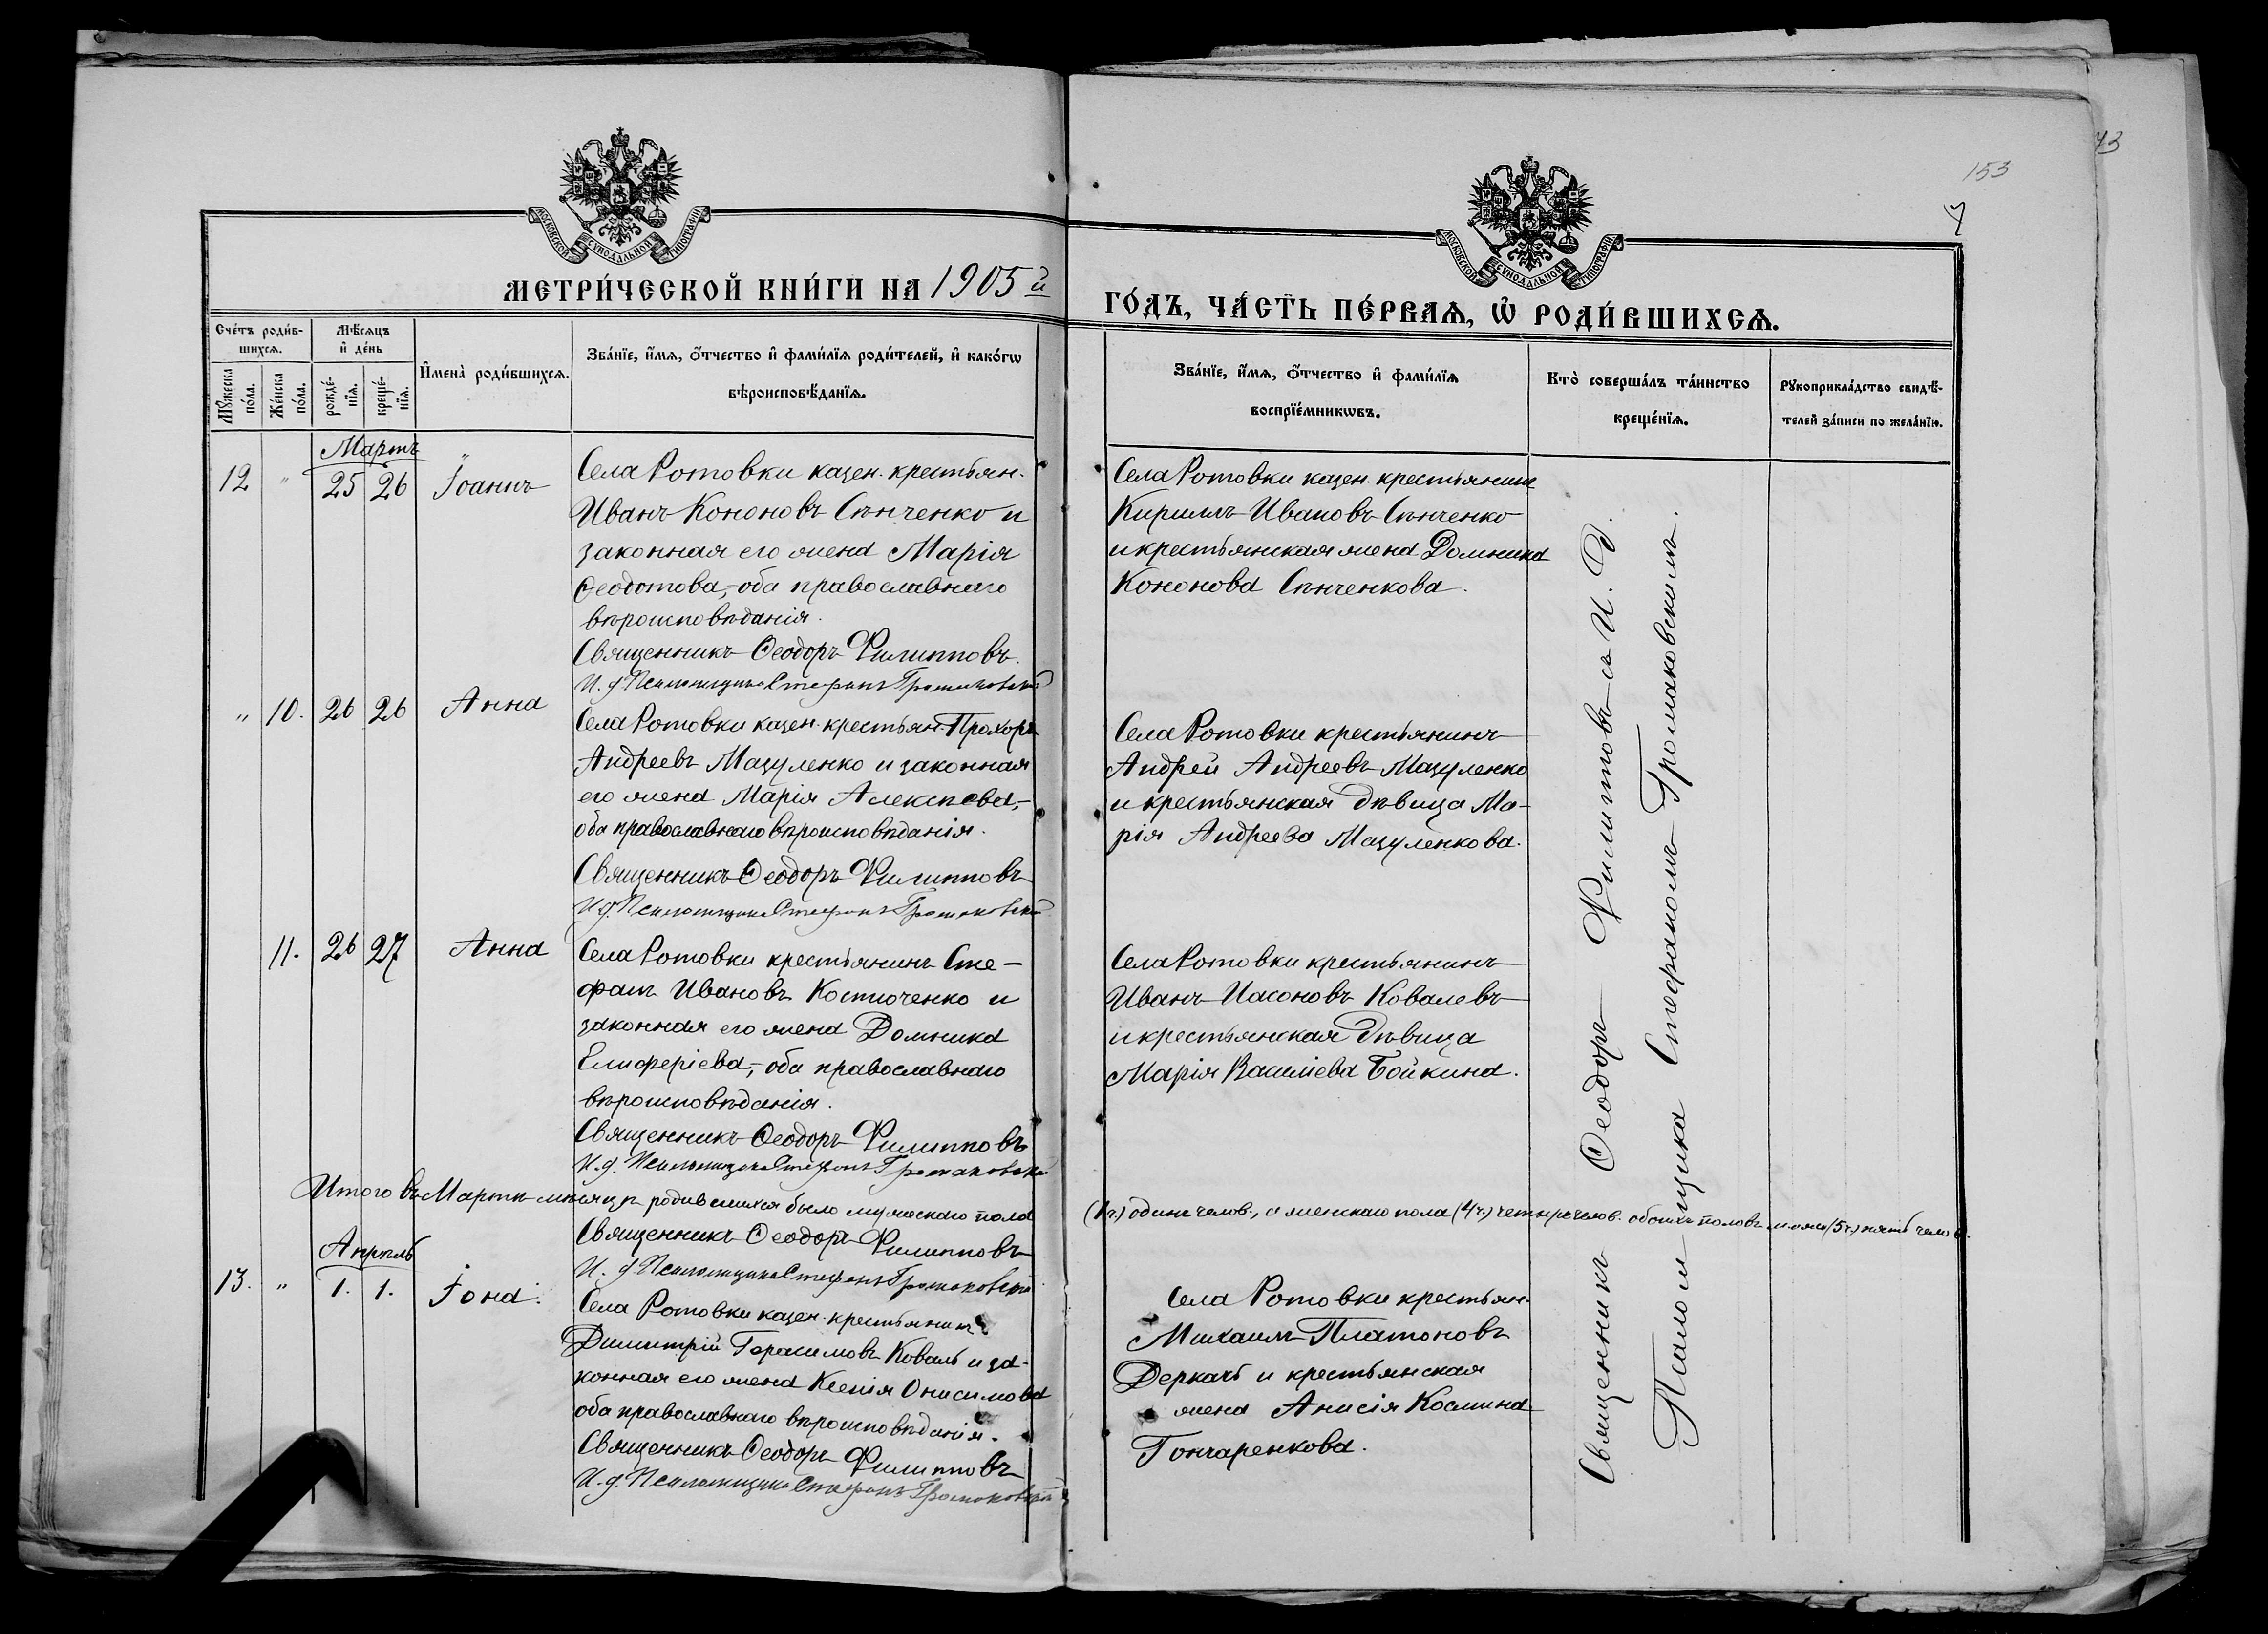 153
7
73
МОСКОВСКОЙ СѴНОДАЛЬНОЙ ТИПОГРАФІИ
МОСКОВСКОЙ СѴНОДАЛЬНОЙ ТИПОГРАФІИ
МЕТРИ́ЧЕСКОЙ КНИ́ГИ НА 1905 й
ГО́ДЪ, ЧА́СТЬ ПЕ́РВАѦ, Ѡ҆ РОДИ́ВШИХСѦ.
Сче́тъ роди́в-
шихсѧ.
Мѣ́сѧцъ
и҆ де́нь
Мꙋ́жеска по́ла.
Же́нска по́ла.
рожде́-
нїѧ.
креще́-
нїѧ.
И҆мена̀ роди́вшихсѧ.
Зва́нїе, и҆́мѧ, ѻ҆́тчество и҆ фами́лїѧ роди́телей, и҆ како́гѡ
вѣроисповѣ́данїѧ.
Зва́нїе, и҆́мѧ, ѻ҆́тчество и҆ фами́лїѧ
воспрїе́мникѡвъ.
Кто̀ соверша́лъ та́инство
креще́нїѧ.
Рꙋкоприкла́дство свидѣ́-
телей за́писи по жела́нїю.
Мартъ
12 " 25 26 Іоаннъ
Села Ротовки казен. крестьян.
Иванъ Кононовъ Сѣнченко и
законная его жена Марія
Ѳеодотова,-оба православнаго
вѣроисповѣданія.
Священникъ Ѳеодоръ Филипповъ.
И. д. Псаломщика Стефанъ Громаковскій
Села Ротовки казен. крестьянинъ
Кириллъ Ивановъ Сѣнченко
и крестьянская жена Домника
Кононова Сѣнченкова.
" 10. 26 26 Анна
Села Ротовки казен. крестьян. Прохоръ
Андреевъ Мазуленко и законная
его жена Марія Алексѣева,-
оба православнаго вѣроисповѣданія.
Священникъ Ѳеодоръ Филипповъ
И. д. Псаломщика Стефанъ Громаковскій
Села Ротовки крестьянинъ
Андрей Андреевъ Мазуленко
и крестьянская дѣвица Ма-
рія Андреева Мазуленкова.
11. 26 27 Анна
Села Ротовки крестьянинъ Сте-
фанъ Ивановъ Костюченко и
законная его жена Домника
Елиферіева,-оба православнаго
вѣроисповѣданія.
Священникъ Ѳеодоръ Филипповъ
И. д. Псаломщика Стефанъ Громаковскій
Села Ротовки крестьянинъ
Иванъ Иасоновъ Ковалевъ
и крестьянская дѣвица
Марія Василіева Бойкина.
Итого въ Мартѣ мѣсяцѣ родившихся было мужескаго пола (1ч.) одинъ челов., а женскаго пола (4ч.) четыре челов. обоихъ половъ (5ч.) пять челов.
Священникъ Ѳеодоръ Филипповъ
И. д. Псаломщика Стефанъ Громаковскій
Апрѣль
13. " 1. 1. Іона.
Села Ротовки казен. крестьянинъ
Димитрій Герасимовъ Коваль и за-
конная его жена Ксенія Онисимова
оба православнаго вѣроисповѣданія.
Священникъ Ѳеодоръ Филипповъ
И. д. Псаломщика Стефанъ Громаковскій
Села Ротовки крестьян.
Михаилъ Платоновъ
Деркачъ и крестьянская
жена Анисія Космина
Гончаренкова.
Священникъ Ѳеодоръ Филипповъ съ И. Д.
Псаломщика Стефаномъ Громаковскимъ.